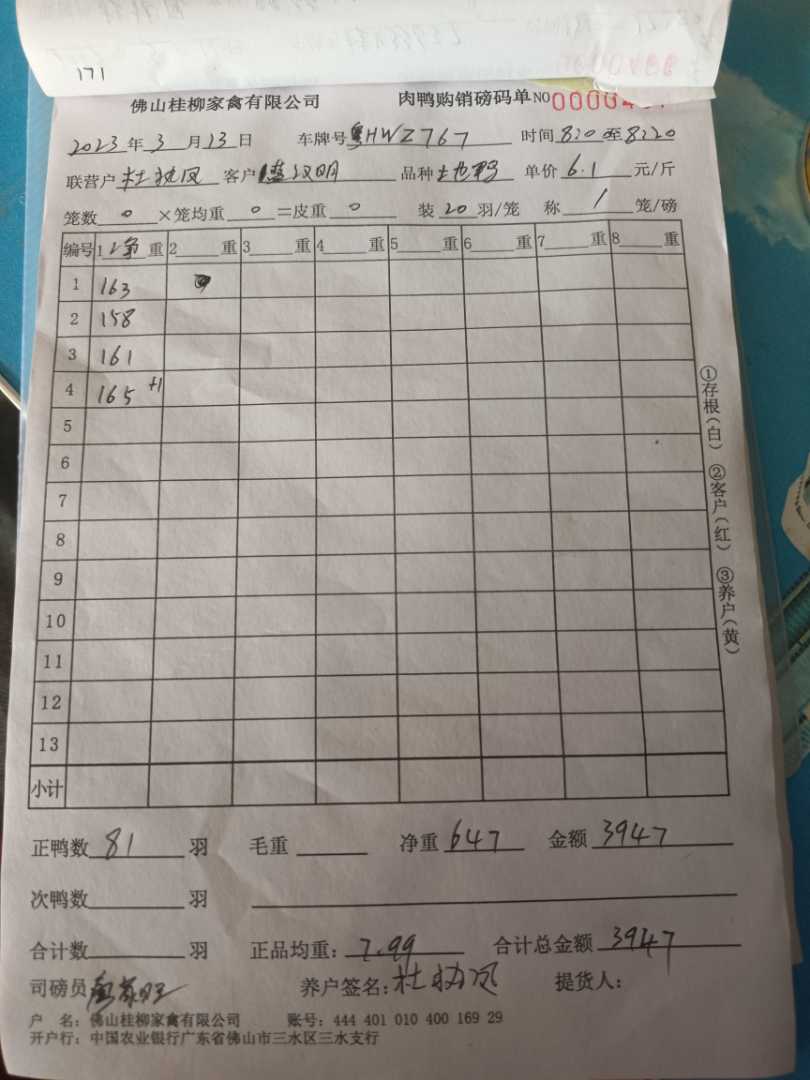 171
佛山桂柳家禽有限公司 肉鸭购销磅码单 NO 0000
2023年3月13日 车牌号粤HWZ767 时间8:20至8:20
联营户 杜 客户 明 品种 土鸭 单价 6.1 元/斤
笼数 0 ×笼均重 0 =皮重 0 装 20 羽/笼 称 1 笼/磅
编号 1 净重 2 重 3 重 4 重 5 重 6 重 7 重 8 重
1 163
2 158
3 161
4 165 +1
5
6
7
8
9
10
11
12
13
小计
①存根(白) ②客户(红) ③养户(黄)
正鸭数 81 羽 毛重 净重 647 金额 3947
次鸭数 羽
合计数 羽 正品均重: 7.99 合计总金额 3947
司磅员 养户签名: 杜 提货人:
户 名: 佛山桂柳家禽有限公司 账号: 444 401 010 400 169 29
开户行: 中国农业银行广东省佛山市三水区三水支行